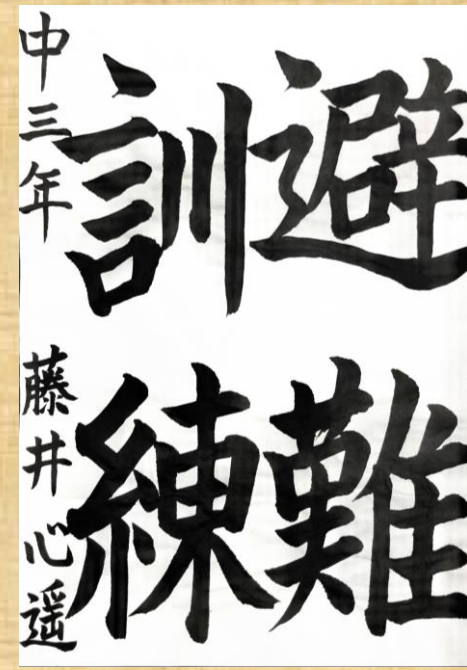 避難
訓練
中三年 藤井心遥